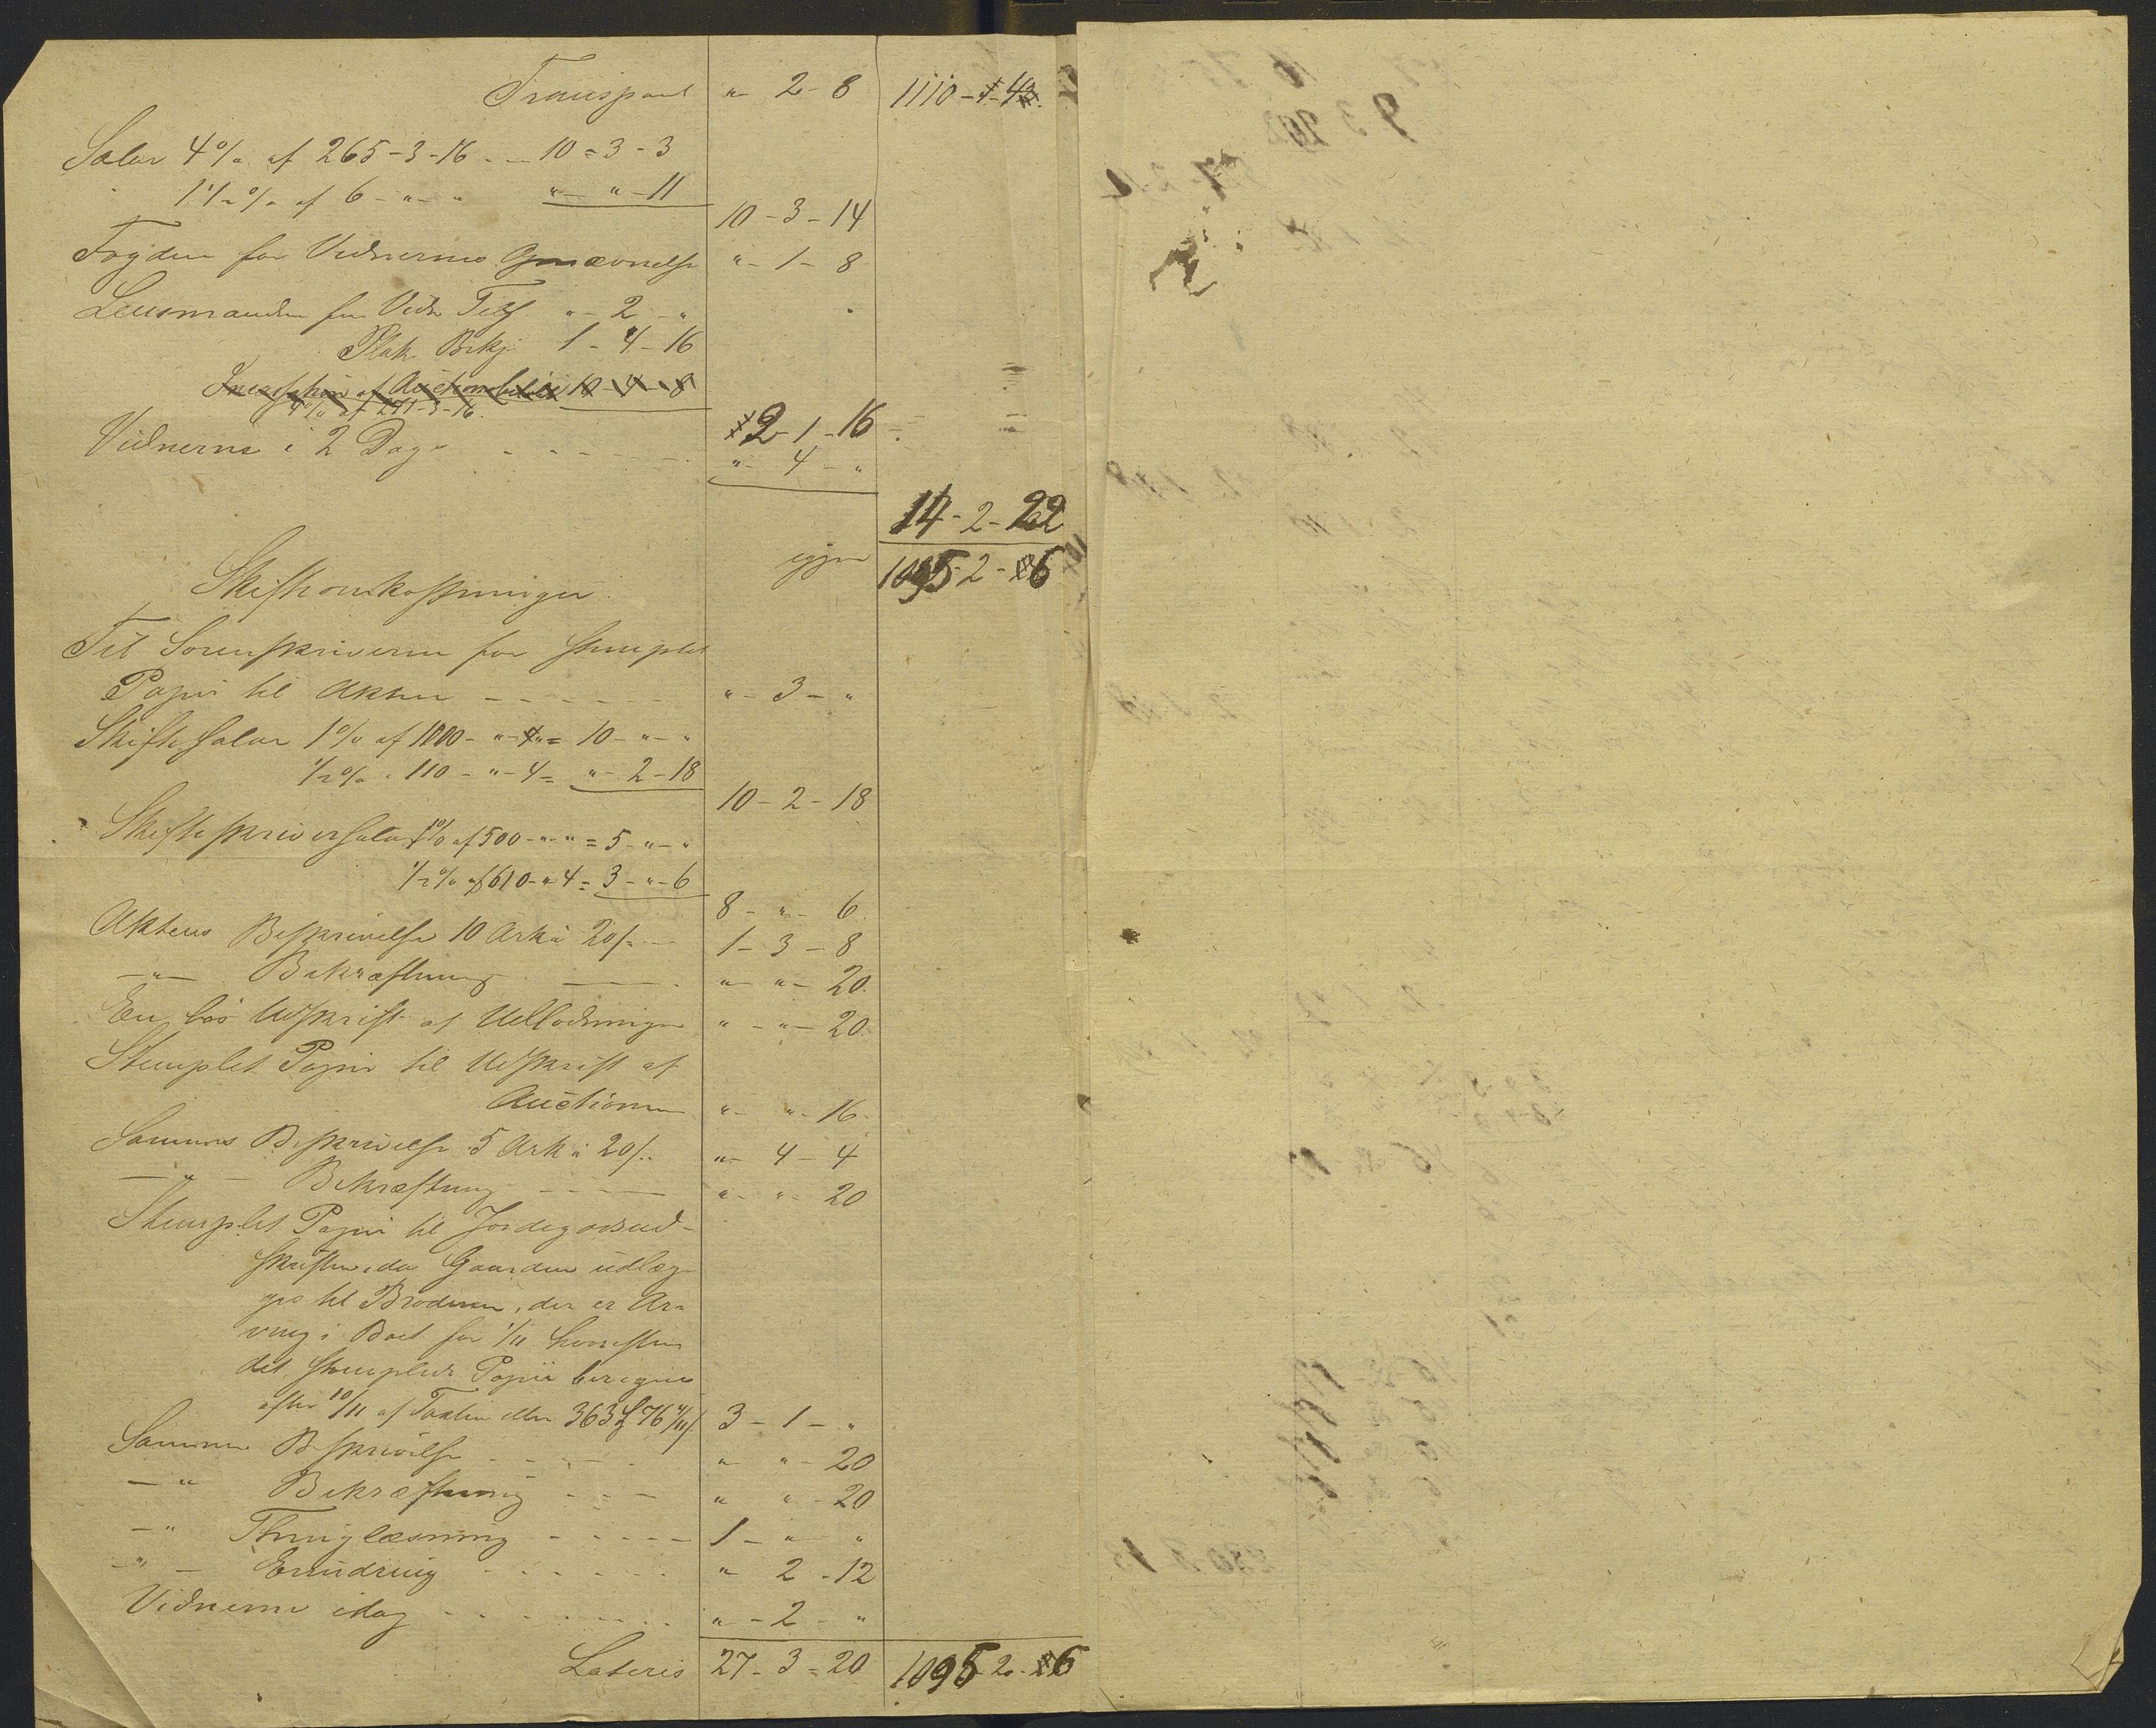 Transport " 2-8 1110-4
Salar 4% af 265-3-16 - 10-3-3
1 1/2% af 6-"-" "-"-11
10-3-14
Fogden for Vidnernes Opnævnelse "-1-8
Lensmanden for Vidn "-2-"
Plak Bekj 1-4-16
Auctions 10-4-8
4% af 271-3-16
2-1-16
Vidnerne i 2 Dage "-4-"
14-2-22
igjen 1095-2-6
Skifteomkostninger
Til Sorenskriveren for stemplet
Papir til Akten "-3-"
Skiftesalar 1% af 1000-"-" = 10-"-"
1/2% " 110-"-4 = "-2-18
10-2-18
Skifteskriversalar 1% af 500-"-" = 5-"-"
1/2% af 610-"-4 = 3-"-6
8-"-6
Aktens Beskrivelse 10 Ark à 20/- 1-3-8
-"- Bekræftning "-"-20
En løs Udskrift af Udlodningen "-"-20
Stemplet Papir til Udskrift af
Auctionen "-"-16
Sammes Beskrivelse 5 Ark à 20/- "-4-4
-"- Bekræftning "-"-20
Stemplet Papir til Jordegodsud-
skriften, da Gaarden udlæg-
ges til Broderen, der er Ar-
ving i Boet for 1/11 hvorefter
det stemplede Papir beregnes
efter 10/11 af Taxten eller 363 76 4/11 3-1-"
Sammes Beskrivelse "-"-20
-"- Bekræftning "-"-20
-"- Thinglæsning 1-"-"
-"- Erindring "-2-12
Vidnerne idag "-2-"
Lateris 27-3-20 1095-2-6